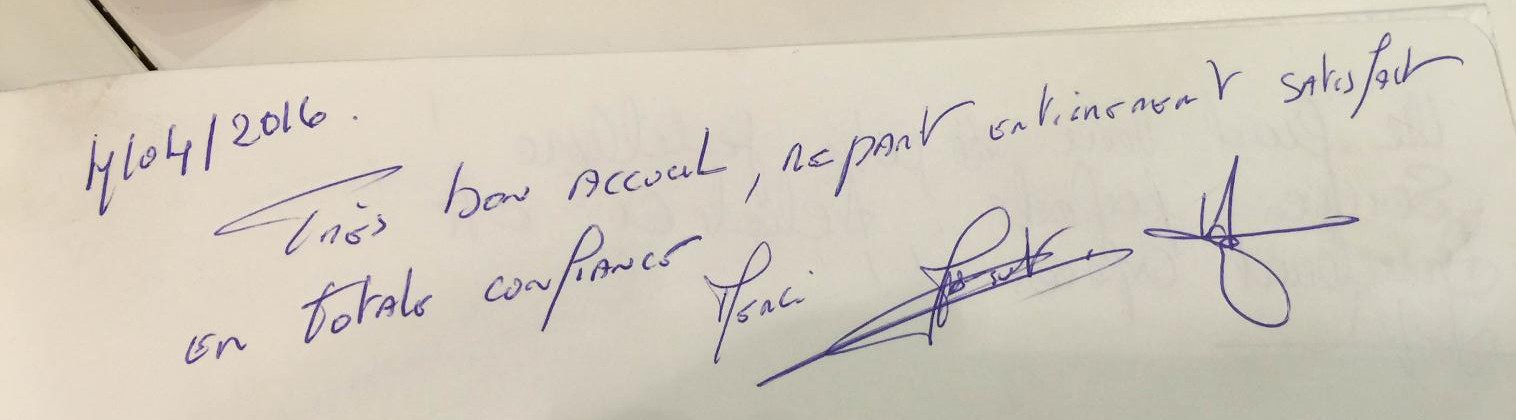 4/04/2016.
Très bon accueil, repart entièrement satisfait
en totale confiance Merci